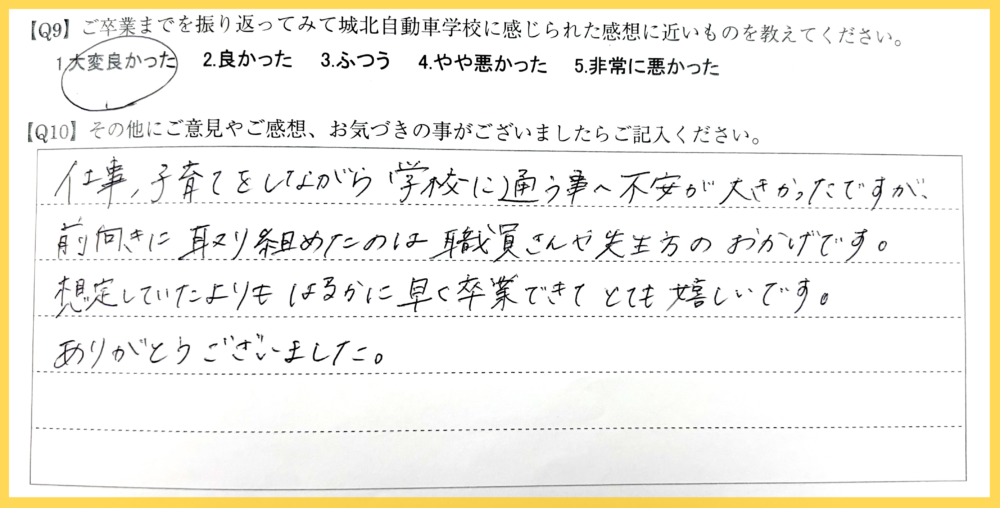 【Q9】ご卒業までを振り返ってみて城北自動車学校に感じられた感想に近いものを教えてください。
1.大変良かった 2.良かった 3.ふつう 4.やや悪かった 5.非常に悪かった
【Q10】その他にご意見やご感想、お気づきの事がございましたらご記入ください。
仕事,子育てをしながら学校に通う事へ不安が大きかったですが、
前向きに取り組めたのは職員さんや先生方のおかげです。
想定していたよりもはるかに早く卒業できてとても嬉しいです。
ありがとうございました。